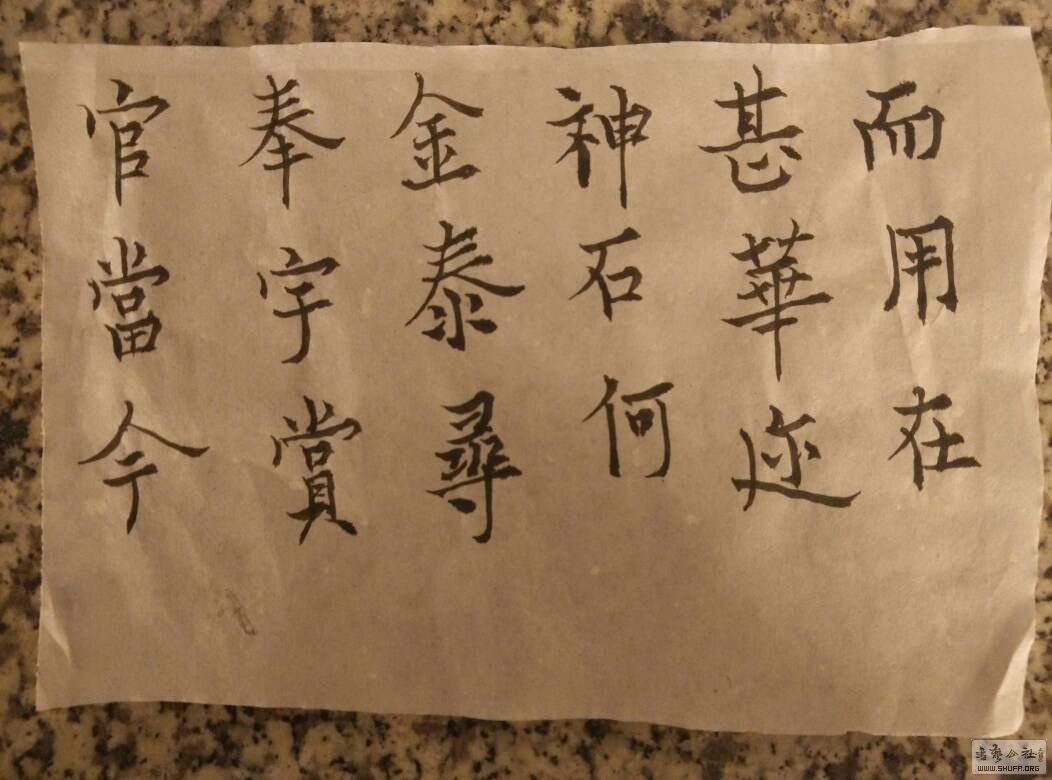 而用在
甚華迩
神石何
金泰尋
奉宇賞
官當今
WWW.SHUFA.ORG